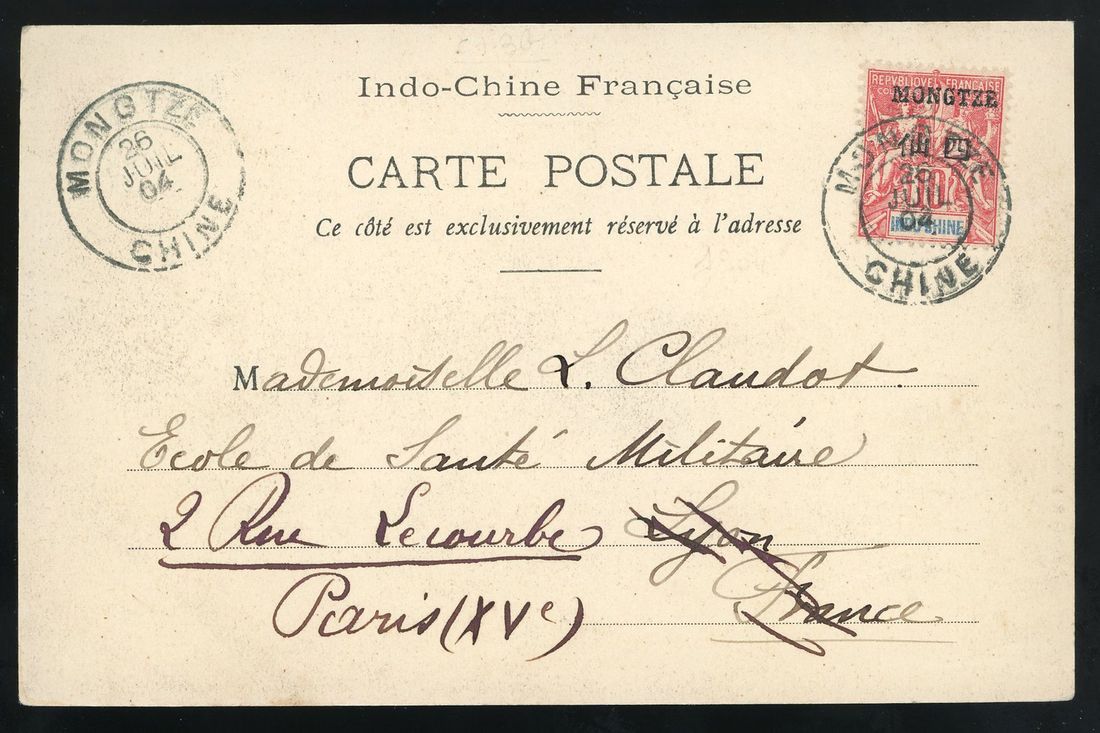 Indo-Chine Française
CARTE POSTALE
Ce côté est exclusivement réservé à l'adresse
MONGTZE
26
JUIL
04
CHINE
REPUBLIQUE FRANÇAISE
MONGTZE
仙四
INDO-CHINE
MONGTZE
26
JUIL
04
CHINE
Mademoiselle L. Claudot.
Ecole de Santé Militaire
2 Rue Lecourbe Lyon
Paris (XVe) France